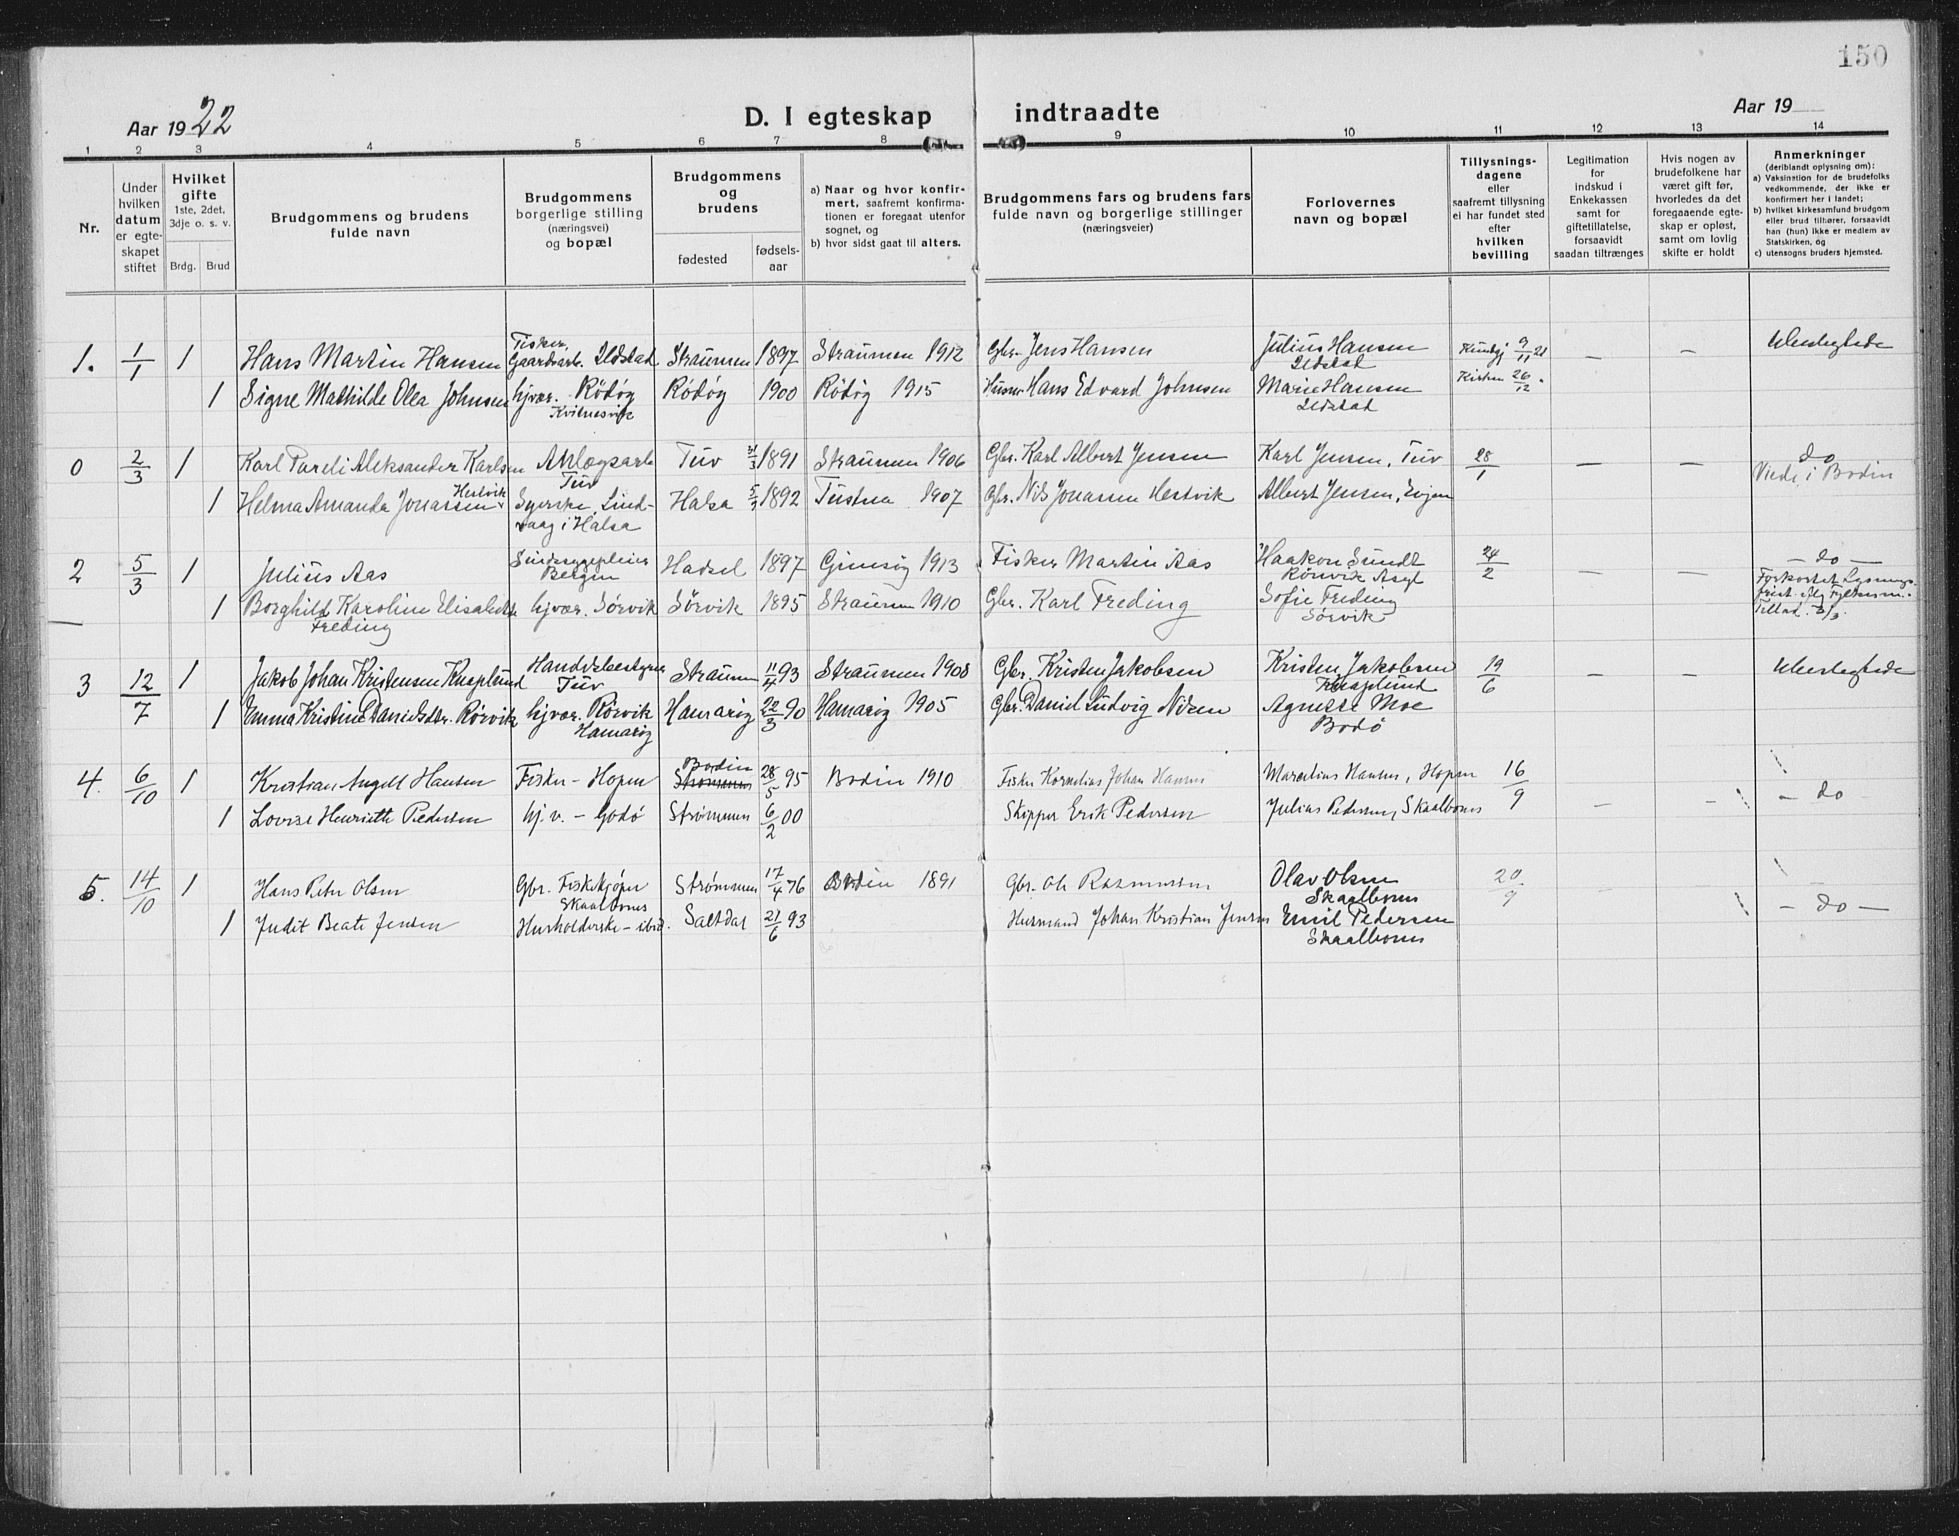 150
Aar 1922
D. I egteskap indtraadte
Aar 19
1 2 3 4 5 6 7 8 9 10 11 12 13 14
Nr.
Under
hvilken
datum
er egte-
skapet
stiftet
Hvilket
gifte
1ste, 2det,
3dje o. s. v.
Brdg. Brud
Brudgommens og brudens
fulde navn
Brudgommens
borgerlige stilling
(næringsvei)
og bopæl
Brudgommens
og
brudens
fødested
fødsels-
aar
a) Naar og hvor konfir-
mert, saafremt konfirma-
tionen er foregaat utenfor
sognet, og
b) hvor sidst gaat til alters.
Brudgommens fars og brudens fars
fulde navn og borgerlige stillinger
(næringsveier)
Forlovernes
navn og bopæl
Tillysnings-
dagene
eller
saafremt tillysning
ei har fundet sted
efter
hvilken
bevilling
Legitimation
for
indskud i
Enkekassen
samt for
giftetillatelse,
forsaavidt
saadan tiltrænges
Hvis nogen av
brudefolkene har
været gift før,
hvorledes da det
foregaaende egte-
skap er opløst,
samt om lovlig
skifte er holdt
Anmerkninger
(deriblandt oplysning om):
a) Vaksination for de brudefolks
vedkommende, der ikke er
konfirmert her i landet;
b) hvilket kirkesamfund brudgom
eller brud tilhører, forsaavidt
han (hun) ikke er medlem av
Statskirken, og
c) utensogns bruders hjemsted.
1. 1/1 1 Hans Martin Hansen Fisker Gaardsarb. Ildstad Straumen 1897 Straumen 1912 Gbr. Jens Hansen Julius Hansen Ildstad 9/11 21 — — Ubeslegtede
1 Signe Mathilde Olea Johnsen hjvær. Rödöy Kvilnesvik Rödöy 1900 Rödöy 1915 Husm. Hans Edvard Johnsen Marie Hansen Ildstad Kirken 26/12
0 2/3 1 Karl Pareli Aleksander Karlsen Anlægsarb Tuv Tuv 31/3 1891 Straumen 1906 Gbr. Karl Albert Jensen Karl Jensen, Tuv 28/1 — — do
Viede i Bodin
1 Helma Amanda Jonassen Hestvik Syerske, Lind-
vaag i Halsa Halsa 5/3 1892 Tustna 1907 Gbr. Nils Jonassen Hestvik Albert Jensen, Evjen
2 5/3 1 Julius Aas Sindssygepleier Bergen Hadsel 1897 Gimsøy 1913 Fisker Martin Aas Haakon Sundt Rønvik Asyl 24/2 — — — do —
Forkortet Lysnings-
frist
1 Borghild Karoline Elisabeth Freding hjvær. Sørvik Sørvik 1895 Straumen 1910 Gbr. Karl Freding Sofie Freding Sørvik
3 12/7 1 Jakob Johan Kristensen Knaplund Handelsbestyrer Tuv Straumen 11/4 93 Straumen 1908 Gbr. Kristen Jakobsen Kristen Jakobsen Knaplund 19/6 — — Ubeslegtede
1 Emma Kristine Danielsdtr. Rørvik hjvær. Rørvik Hamarøy Hamarøy 22/3 90 Hamarøy 1905 Gbr. Daniel Ludvig Nilsen Agnette Moe Bodø
4. 6/10 1 Kristian Angell Hansen Fisker – Hopen Bodin Strømmen 28/5 95 Bodin 1910 Fisker Kornelius Johan Hansen Marselius Hansen, Hopen 16/9
1 Lovise Henriette Pedersen hj.v. – Godø Strømmen 6/2 00 Skipper Erik Pedersen Julius Pedersen, Skaalbones — — – do –
5. 14/10 1 Hans Peter Olsen Gbr. Fiskekjøper Skaalbones Strømmen 17/4 76 Bodin 1891 Gbr. Ole Rasmussen Olav Olsen Skaalbones 20/9 —
1 Judit Beate Jensen Husholderske – ibid. Saltdal 21/6 93 Husmand Johan Kristian Jensen Emil Pedersen Skaalbones – do –